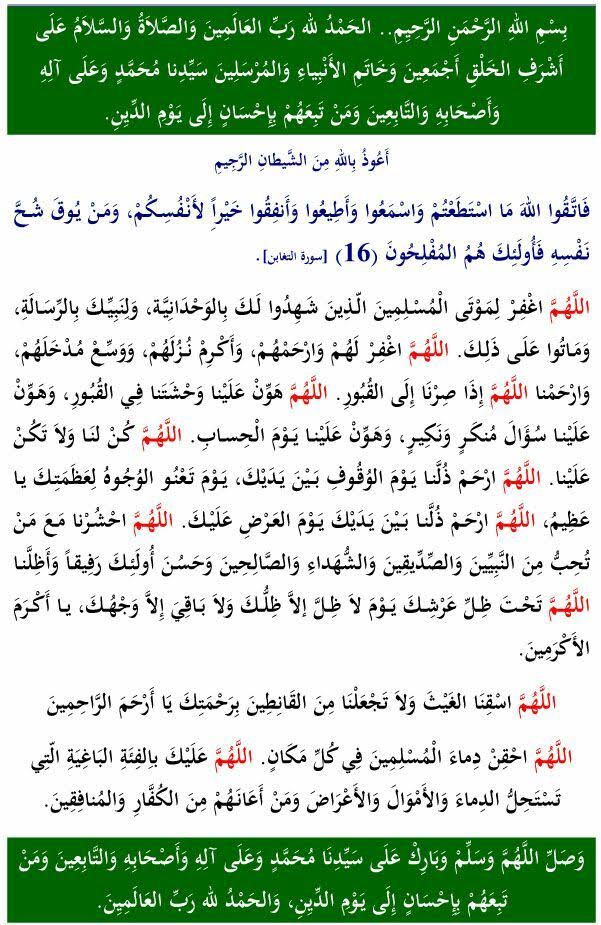 بِسْمِ اللهِ الرَّحْمَنِ الرَّحِيمِ.. الحَمْدُ لله رَبِّ العَالَمِينَ وَالصَّلاَةُ وَالسَّلاَمُ عَلَى
أَشْرَفِ الخَلْقِ أَجْمَعِينَ وَخَاتَمِ الأَنْبِياءِ وَالمُرْسَلِينَ سَيِّدِنا مُحَمَّدٍ وَعَلَى آلِهِ
وَأَصْحَابِهِ وَالتَّابِعِينَ وَمَنْ تَبِعَهُمْ بِإِحْسَانٍ إِلَى يَوْمِ الدِّينِ.
أَعُوذُ بِاللهِ مِنَ الشَّيطانِ الرَّجِيمِ
فَاتَّقُوا اللهَ مَا اسْتَطَعْتُمْ وَاسْمَعُوا وَأَطِيعُوا وَأَنفِقُوا خَيْراً لأَنْفُسِكُمْ، وَمَنْ يُوقَ شُحَّ
نَفْسِهِ فَأُولَئِكَ هُمُ المُفْلِحُونَ (16) [سورة التغابن].
اللَّهُمَّ اغْفِرْ لِمَوْتَى الْمُسْلِمِينَ الّذِينَ شَهِدُوا لَكَ بِالوَحْدَانِيَّة، وَلِنَبِيِّكَ بِالرِّسَالَةِ،
وَمَاتُوا عَلَى ذَلِكَ. اللَّهُمَّ اغْفِرْ لَهُمْ وَارْحَمْهُمْ، وَأَكْرِمْ نُزُلَهُمْ، وَوَسِّعْ مُدْخَلَهُمْ،
وَارْحَمْنا اللَّهُمَّ إِذَا صِرْنَا إِلَى القُبُورِ. اللَّهُمَّ هَوِّنْ عَلَيْنا وَحْشَتَنا فِي القُبُورِ، وَهَوِّنْ
عَلَيْنا سُؤَالَ مُنكَرٍ وَنَكِيرٍ، وَهَوِّنْ عَلَيْنا يَوْمَ الْحِسابِ. اللَّهُمَّ كُنْ لنَا وَلاَ تَكُنْ
عَلَيْنا. اللَّهُمَّ ارْحَمْ ذُلَّنا يَوْمَ الوُقُوفِ بَيْنَ يَدَيْكَ، يَوْمَ تَعْنُو الوُجُوهُ لِعَظَمَتِكَ يا
عَظِيمُ، اللَّهُمَّ ارْحَمْ ذُلَّنا بَيْنَ يَدَيْكَ يَوْمَ العَرْضِ عَلَيْكَ. اللَّهُمَّ احْشُرْنا مَعَ مَنْ
تُحِبُّ مِنَ النَّبِيِّينَ وَالصِّدِّيقِينَ وَالشُّهَداءِ وَالصَّالِحِينَ وَحَسُنَ أُولَئِكَ رَفِيقاً وَأَظِلَّنا
اللَّهُمَّ تَحْتَ ظِلِّ عَرْشِكَ يَوْمَ لاَ ظِلَّ إلاَّ ظِلُّكَ وَلاَ بَاقِيَ إِلاَّ وَجْهُكَ، يا أَكْرَمَ
الأَكْرَمِينَ.
اللَّهُمَّ اسْقِنَا الغَيْثَ وَلاَ تَجْعَلْنَا مِنَ القَانِطِينَ بِرَحْمَتِكَ يَا أَرْحَمَ الرَّاحِمِينَ
اللَّهُمَّ احْقِنْ دِماءَ الْمُسْلِمِينَ فِي كُلِّ مَكَانٍ. اللَّهُمَّ عَلَيْكَ بِالفِئَةِ البَاغِيَةِ الّتِي
تَسْتَحِلُّ الدِماءَ وَالأَمْوَالَ وَالأَعْرَاضَ وَمَنْ أَعَانَهُمْ مِنَ الكُفَّارِ وَالمُنافِقِينَ.
وَصَلِّ اللَّهُمَّ وَسَلِّمْ وَبَارِكْ عَلَى سَيِّدِنَا مُحَمَّدٍ وَعَلَى آلِهِ وَأَصْحَابِهِ وَالتَّابِعِينَ وَمَنْ
تَبِعَهُمْ بِإِحْسَانٍ إِلَى يَوْمِ الدِّينِ، وَالحَمْدُ لله رَبِّ العَالَمِيِنَ.